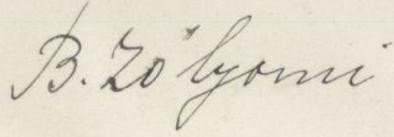 B. Zólyomi